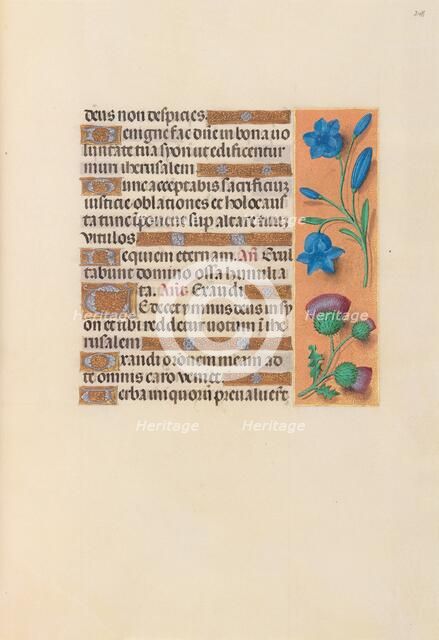 248
deus non despicies.
Benigne fac dñe in bona uo
luntate tua syon ut edificentur
muri iherusalem
Tunc acceptabis sacrificiuz
iusticie oblationes et holocaus
ta tunc īponent sup altare tuū
vitulos
Requiem eternam. Añ Exul
tabunt domino ossa humilia
ta. Añs Exaudi.
Te decet ymnus deus in sy
on et tibi reddetur uotum ī ihe
rusalem
Exaudi orōnem meam ad
te omnis caro veniet
Verba iniquorū preualuerūt
Heritage
Heritage
Heritage
Heritage
Heritage
Heritage